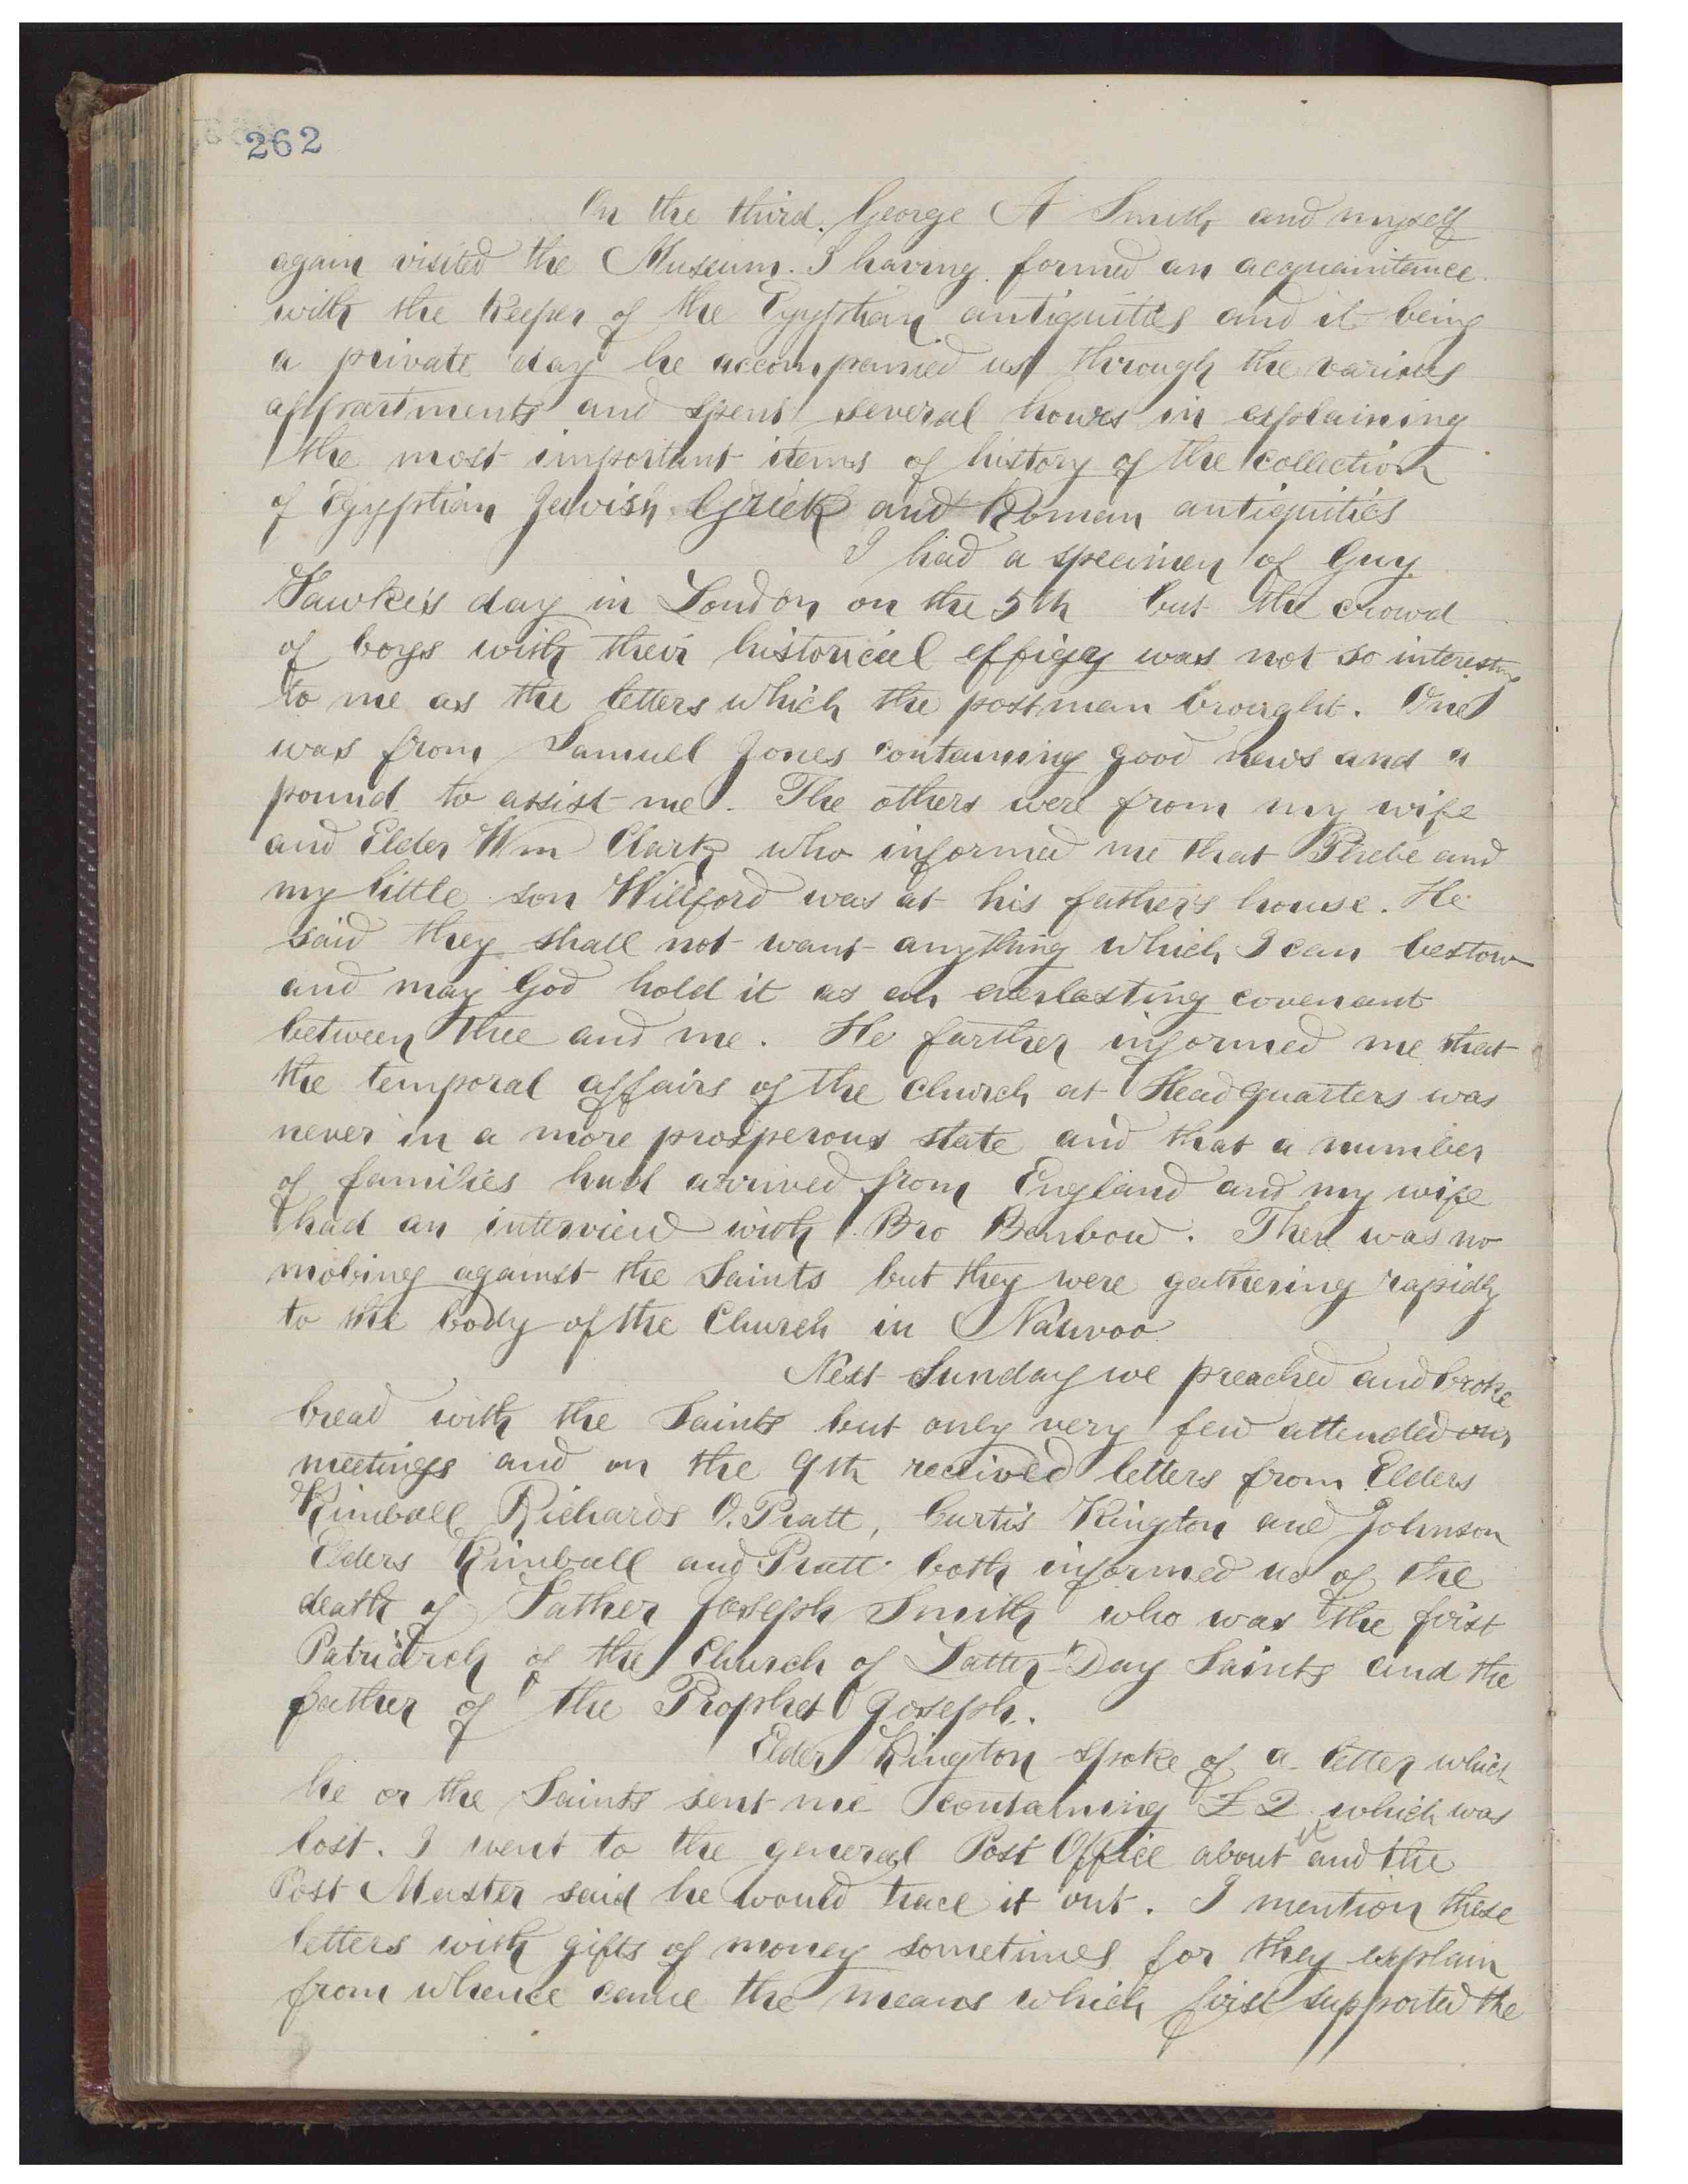 262
On the third. George A Smith and myself
again visited the Museum. I having formed an acquaintance
with the Keeper of the Egyptian antiquities and it being
a private day he accompanied us through the various
appartments and spent several hours in explaining
the most important items of history of the collection
of Egyptian Jewish Greek and Roman antiquities
I had a specimen of Guy
Fawke's day in London on the 5th but the crowd
of boys with their historical effigy was not so interesting
to me as the letters which the postman brought. One
was from Samuel Jones containing good news and a
pound to assist me. The others were from my wife
and Elder Wm Clark who informed me that Phebe and
my little son Willford was at his father's house. He
said they shall not want anything which I can bestow
and may God hold it as an everlasting covenant
between thee and me. He farther informed me that
the temporal affairs of the church at Head quarters was
never in a more prosperous state and that a number
of families had arrived from England and my wife
had an interview with Bro Benbow. There was no
mobing against the Saints but they were gathering rapidly
to the body of the Church in Nauvoo
Next Sunday we preached and broke
bread with the Saints but only very few attended our
meetings and on the 9th received letters from Elders
Kimball Richards O. Pratt, Curtis Kington and Johnson
Elders Kimball and Pratt both informed us of the
death of Father Joseph Smith who was the first
Patriarch of the Church of Latter Day Saints and the
father of the Prophet Joseph.
Elder Kington spoke of a letter which
he or the Saints sent me containing £2 which was
lost. I went to the general Post Office about it and the
Post Master said he would trace it out. I mention these
letters with gifts of money sometimes for they explain
from whence came the means which first supported the